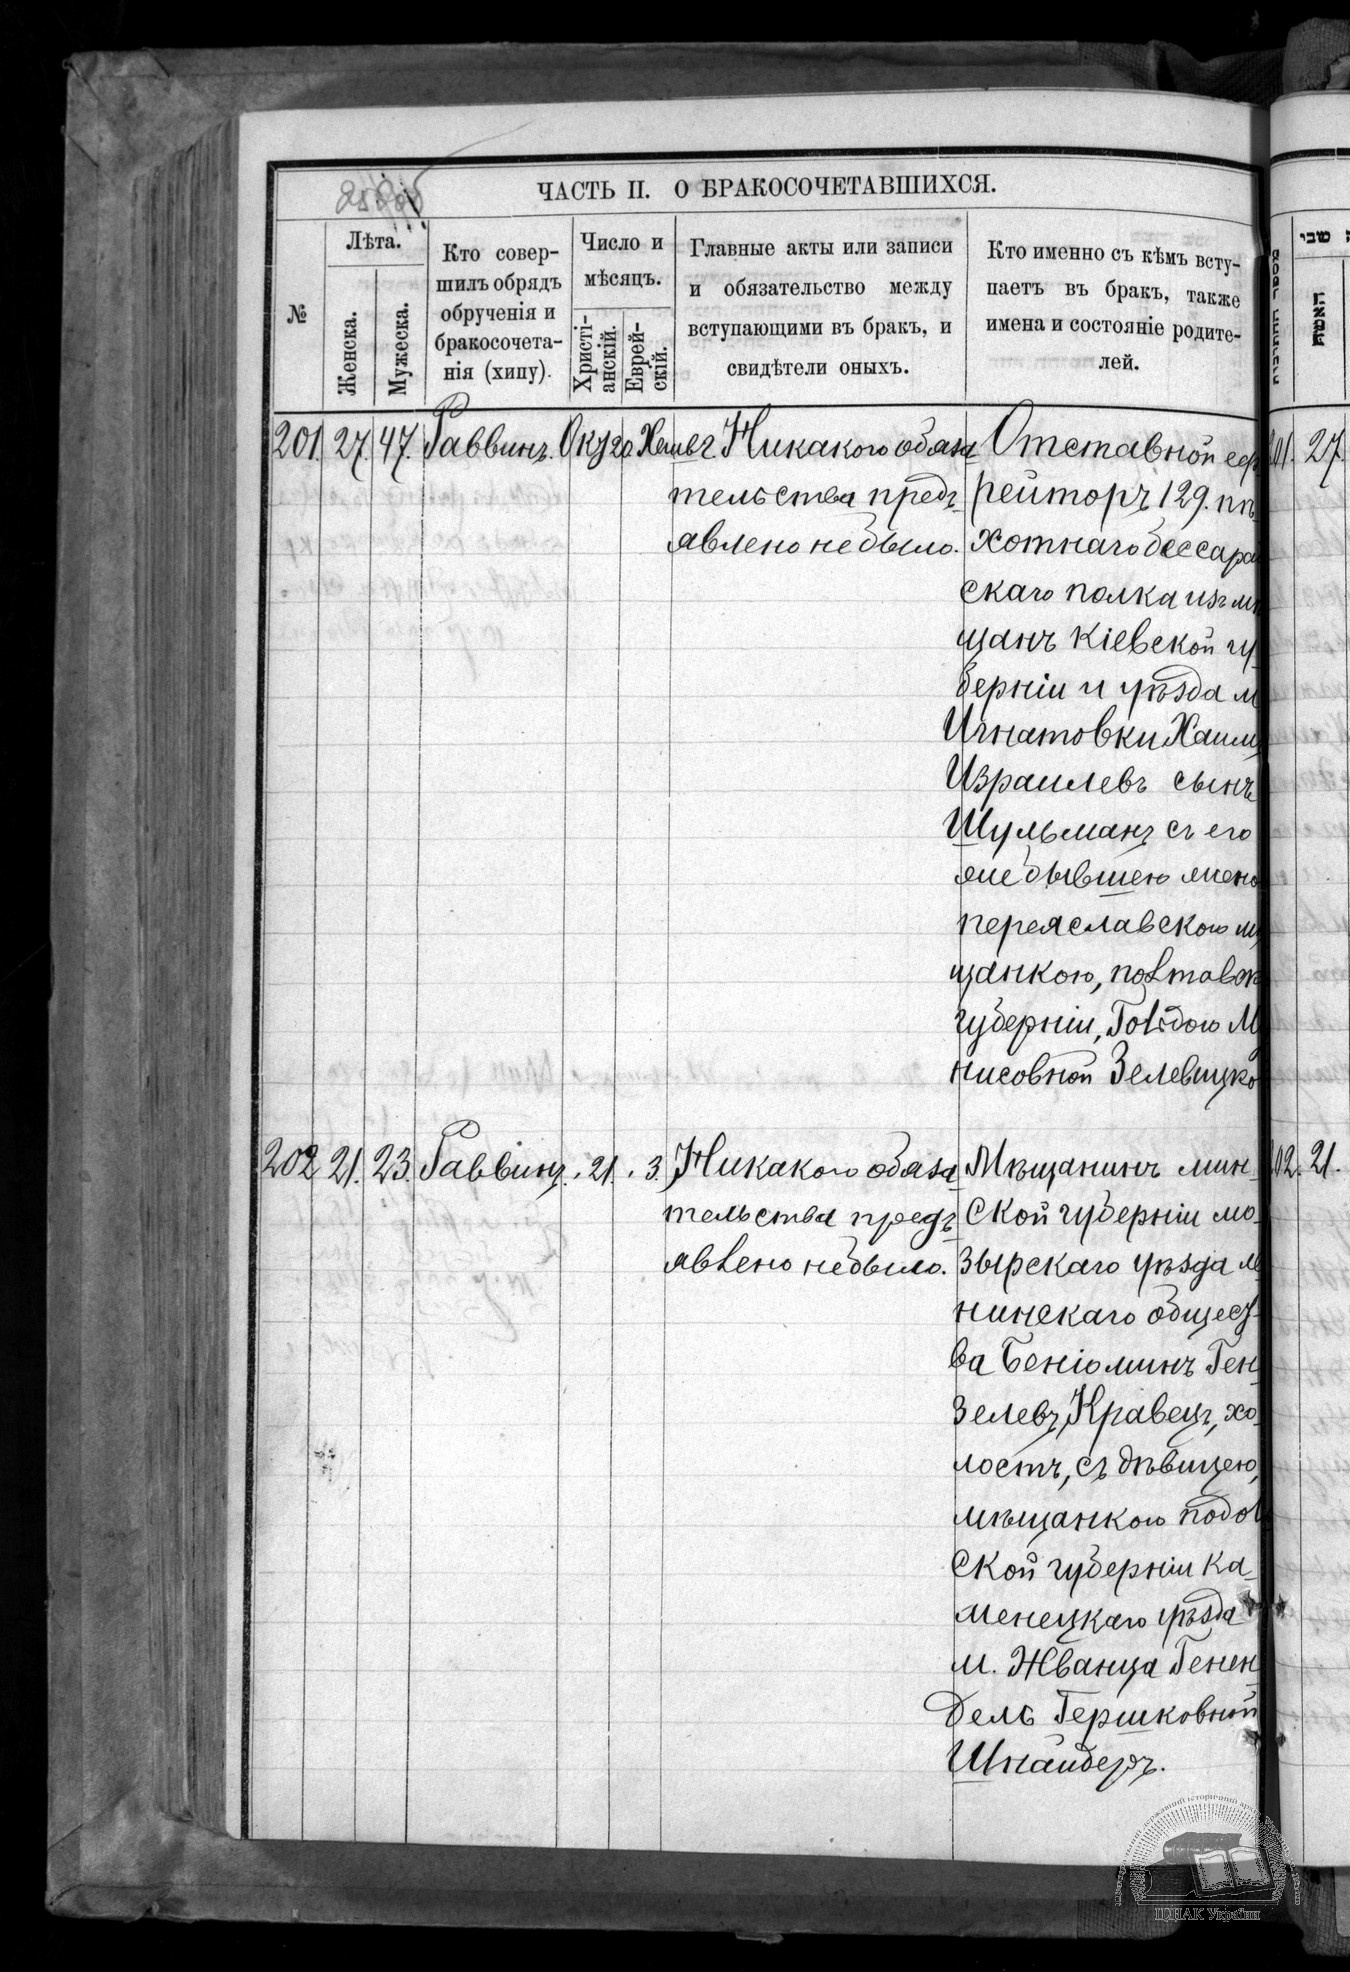 ЧАСТЬ II. О БРАКОСОЧЕТАВШИХСЯ.
№
Лѣта.
Женска.
Мужеска.
Кто совер-
шилъ обрядъ
обрученія и
бракосочета-
нія (хипу).
Число и
мѣсяцъ.
Христі-
анскій.
Еврей-
скій.
Главные акты или записи
и обязательство между
вступающими въ брак, и
свидѣтели оныхъ.
Кто именно съ кѣмъ всту-
паетъ въ бракъ, также
имена и состояніе родите-
лей.
201. 27. 47. Раввинъ. Окт 20 Никакого обяза
тельства предъ
явлено не было.
Отставной еф
рейторъ 129. пѣ
хотнаго бессараб
скаго полка изъ мѣ
щанъ Кіевской гу
берніи и уѣзда м
Игнатовки Хаимъ
Израилевъ сынъ
Шульманъ съ его
же бывшею жено
переяславскою мѣ
щанкою, полтавск
губерніи, Голдою М
нисовной Зелевицко
202 21. 23. Раввинъ. 21. 3. Никакого обяза
тельства предъ
явлено не было.
Мѣщанинъ мин-
ской губерніи мо-
зырскаго уѣзда ле
нинскаго общест
ва Беніоминъ Ген
зелевъ Кравецъ, хо-
лостъ, съ дѣвицею,
мѣщанкою подол
ской губерніи ка-
менецкаго уѣзда
м. Жванца Генен
дель Гершковной
Шнайдеръ.
שבי
האשה
201. 27.
202. 21.
ЦДІАК України